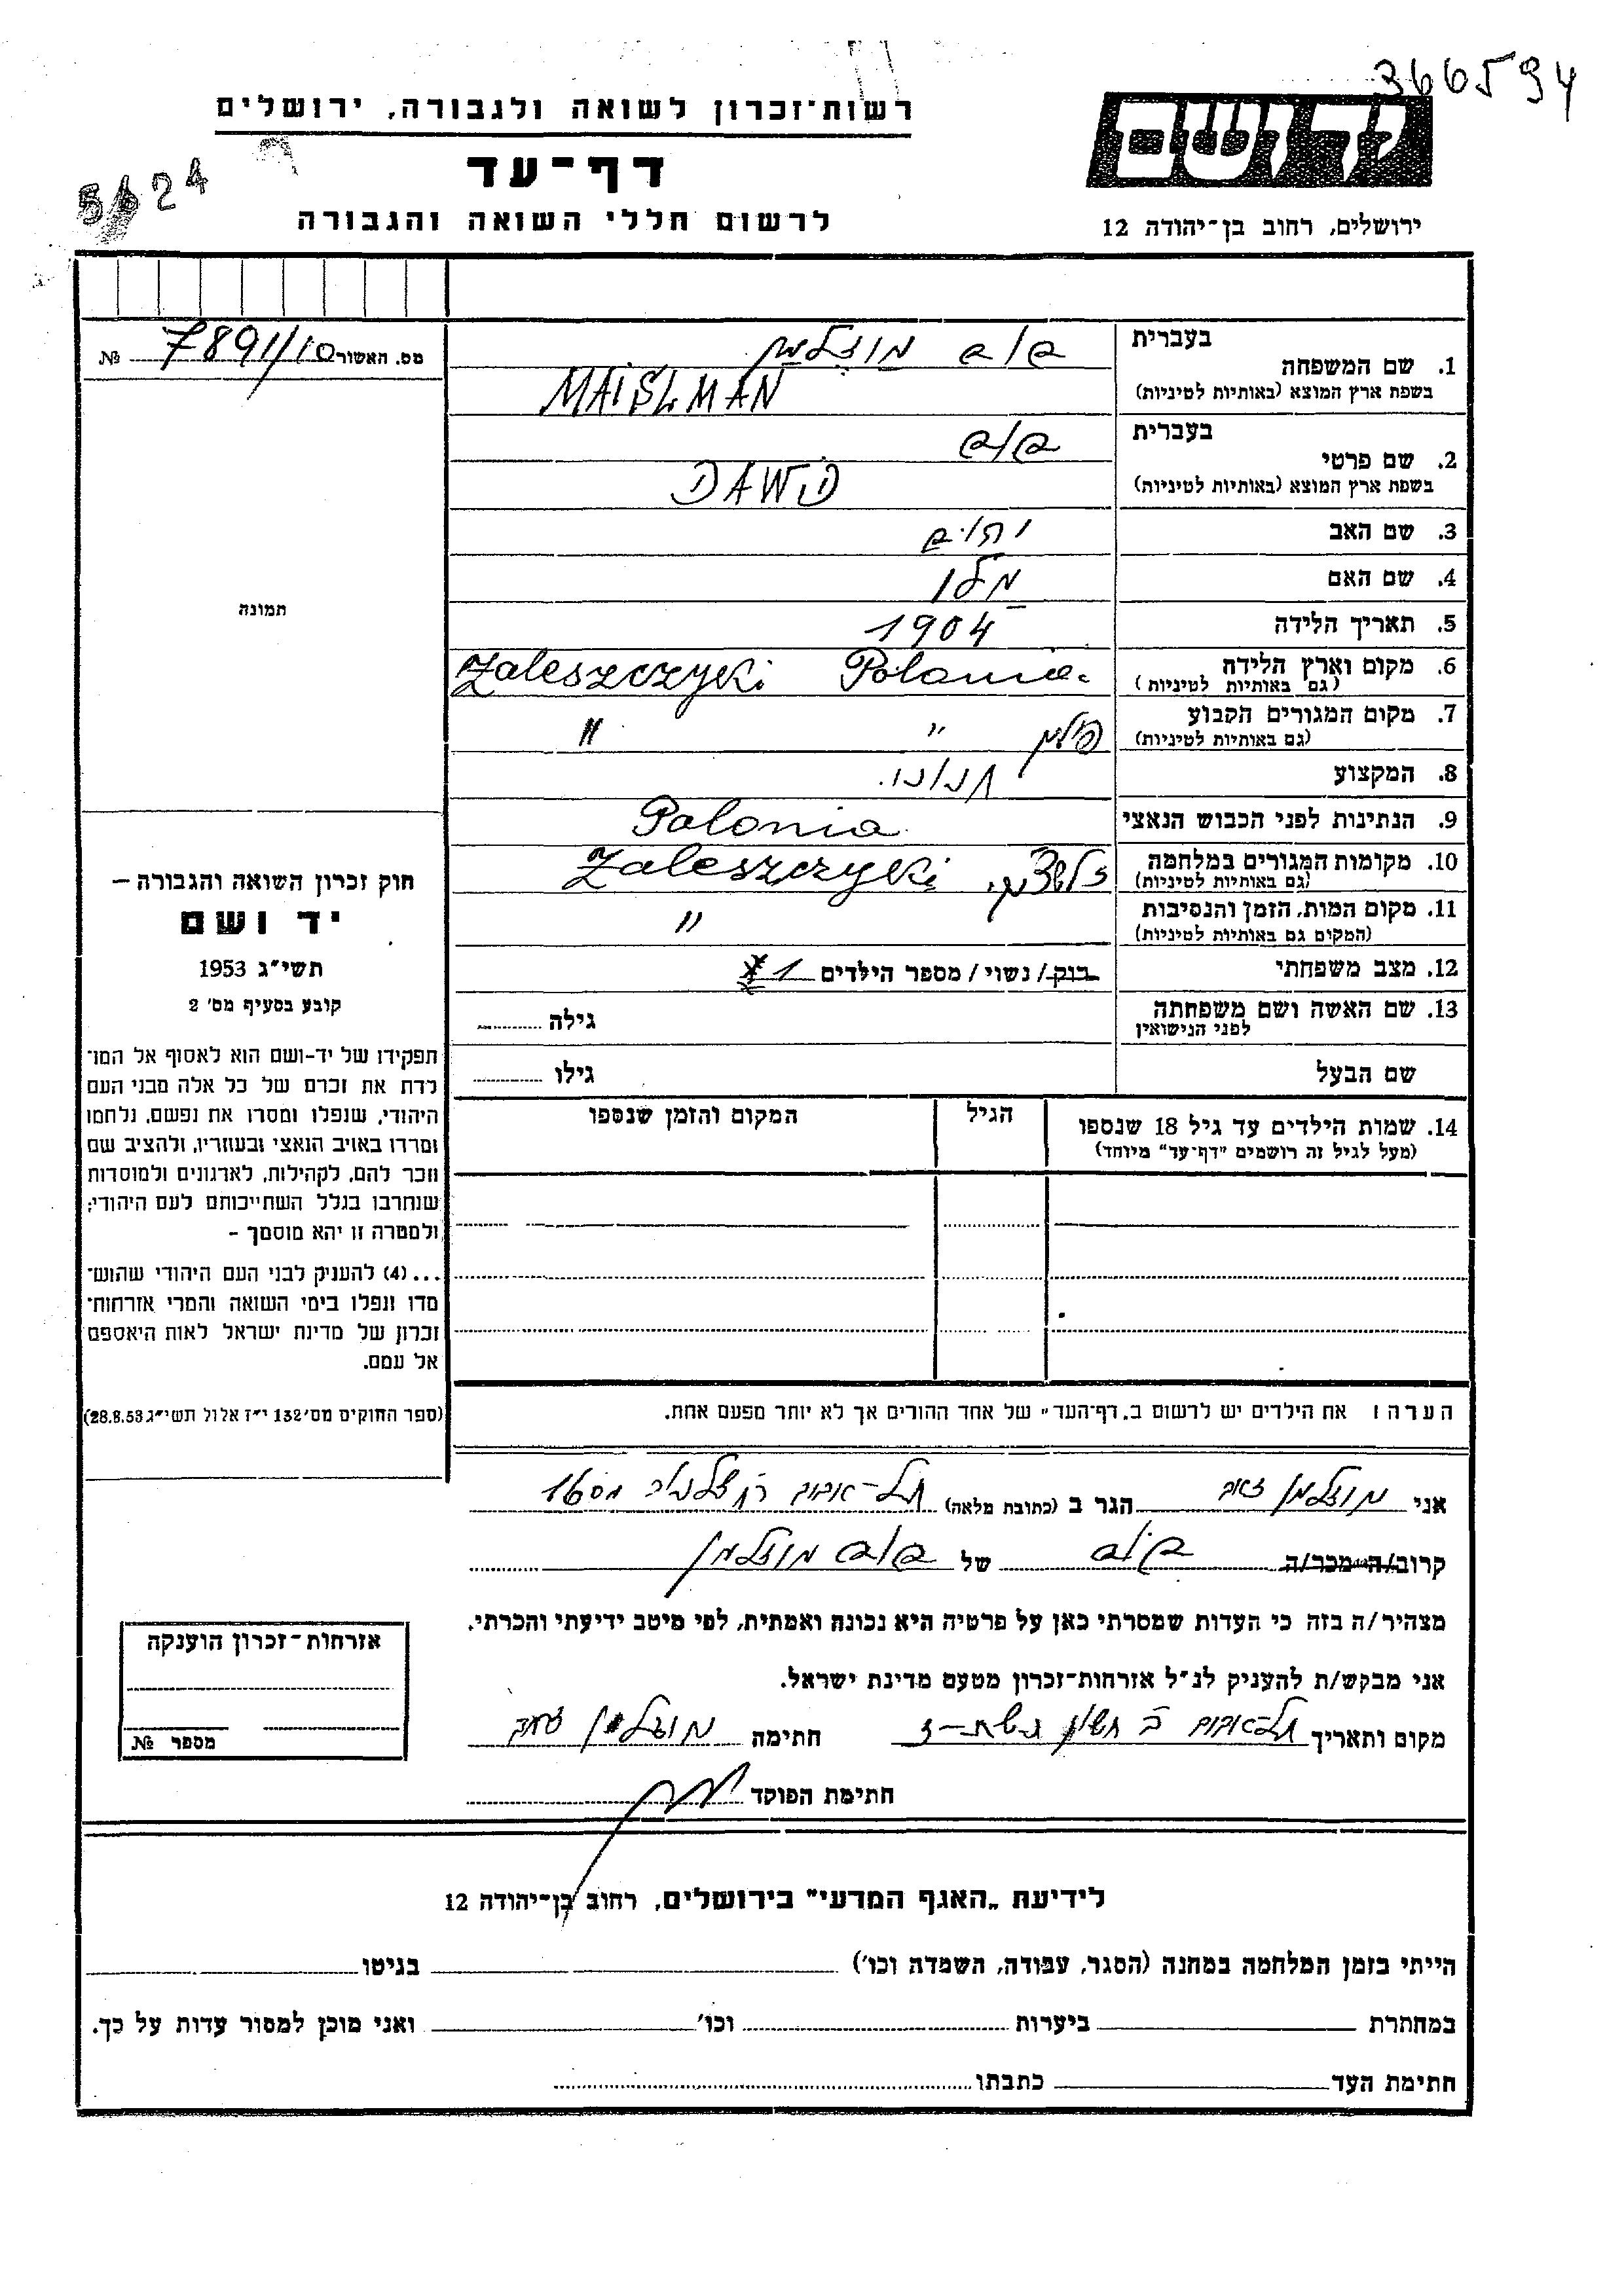 366594
רשות־זכרון לשואה ולגבורה, ירושלים
ידושם
דף־עד
5624
לרשום חללי השואה והגבורה
ירושלים, רחוב בן־יהודה 12
מס. האשור 7891/10 №
1. שם המשפחה
בעברית
דוד
בשפת ארץ המוצא (באותיות לטיניות) MAISLMAN
2. שם פרטי
בעברית דוד
בשפת ארץ המוצא (באותיות לטיניות) DAWID
3. שם האב
4. שם האם
5. תאריך הלידה 1904
6. מקום וארץ הלידה Zaleszczyki Polonia
(גם באותיות לטיניות)
7. מקום המגורים הקבוע פולין " "
(גם באותיות לטיניות)
8. המקצוע
9. הנתינות לפני הכבוש הנאצי Polonia
10. מקומות המגורים במלחמה Zaleszczyki
(גם באותיות לטיניות)
11. מקום המות, הזמן והנסיבות "
(המקום גם באותיות לטיניות)
12. מצב משפחתי רווק/ נשוי / מספר הילדים 1
13. שם האשה ושם משפחתה
לפני הנישואין
גילה
שם הבעל גילו
14. שמות הילדים עד גיל 18 שנספו
(מעל לגיל זה רושמים "דף־עד" מיוחד)
הגיל
המקום והזמן שנספו
הערה: את הילדים יש לרשום ב„דף־העד" של אחד ההורים אך לא יותר מפעם אחת.
תמונה
חוק זכרון השואה והגבורה —
יד ושם
תשי״ג 1953
קובע בסעיף מס' 2
תפקידו של יד-ושם הוא לאסוף אל המו־
לדת את זכרם של כל אלה מבני העם
היהודי, שנפלו ומסרו את נפשם, נלחמו
ומרדו באויב הנאצי ובעוזריו, ולהציב שם
וזכר להם, לקהילות, לארגונים ולמוסדות
שנחרבו בגלל השתייכותם לעם היהודי;
ולמטרה זו יהא מוסמך –
...(4) להעניק לבני העם היהודי שהוש־
מדו ונפלו בימי השואה והמרי אזרחות־
זכרון של מדינת ישראל לאות היאספם
אל עמם.
(ספר החוקים מס' 132 י״ז אלול תשי״ג 28.8.53)
אני זאב הגר ב (כתובת מלאה) תל-אביב
קרוב/ה מכר/ה דוד של דוד
מצהיר/ה בזה כי העדות שמסרתי כאן על פרטיה היא נכונה ואמתית, לפי מיטב ידיעתי והכרתי.
אני מבקש/ת להעניק לנ״ל אזרחות־זכרון מטעם מדינת ישראל.
מקום ותאריך תל-אביב חתימה זאב
חתימת הפוקד
אזרחות־זכרון הוענקה
מספר №
לידיעת „האגף המדעי" בירושלים, רחוב בן־יהודה 12
הייתי בזמן המלחמה במחנה (הסגר, עבודה, השמדה וכו') בגיטו
במחתרת ביערות וכו' ואני מוכן למסור עדות על כך.
חתימת העד כתבתו